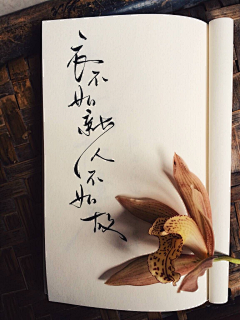 衣不如新人不如故